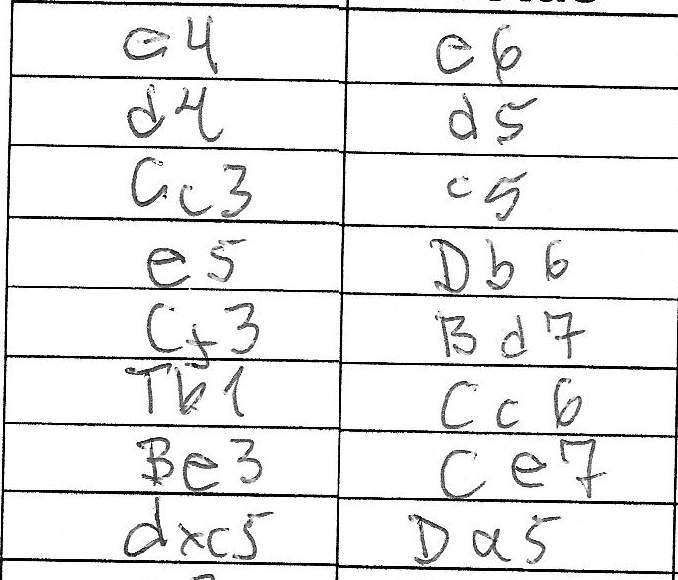 e4 e6
d4 d5
Cc3 c5
e5 Db6
Cf3 Bd7
Tb1 Cc6
Be3 Ce7
dxc5 Da5